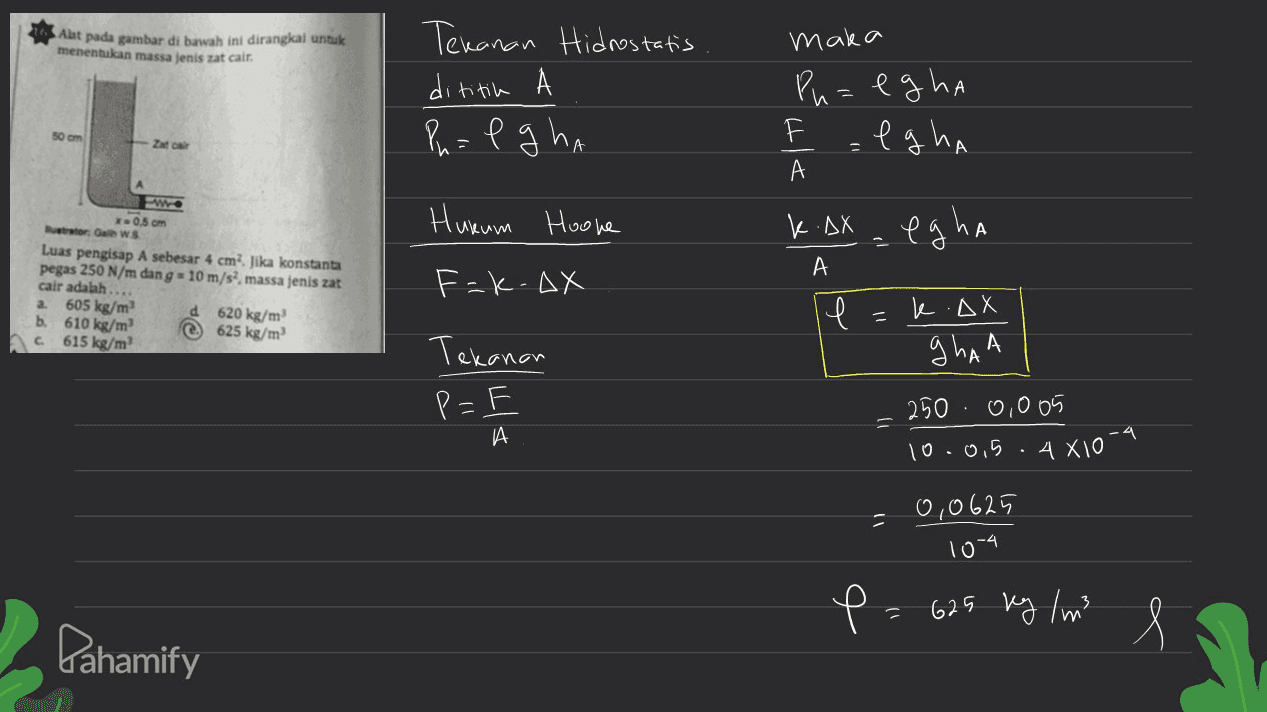 16. Alat pada gambar di bawah ini dirangkai untuk
menentukan massa jenis zat cair.
50 cm
Zat cair
A
x = 0,5 cm
Ilustrator: Galih W.S.
Luas pengisap A sebesar 4 cm². Jika konstanta
pegas 250 N/m dan g = 10 m/s², massa jenis zat
cair adalah ....
a. 605 kg/m³
b. 610 kg/m³
c. 615 kg/m³
d. 620 kg/m³
e. 625 kg/m³
Tekanan Hidrostatis.
dititik A
Ph = ρ g hA
Hukum Hooke
F = k . Δx
Tekanan
P = F
A
maka
Ph = ρ g hA
F = ρ g hA
A
k . Δx = ρ g hA
A
ρ = k . Δx
g hA A
= 250 . 0,005
10 . 0,5 . 4 x 10⁻⁴
= 0,0625
10⁻⁴
ρ = 625 kg/m³
Pahamify